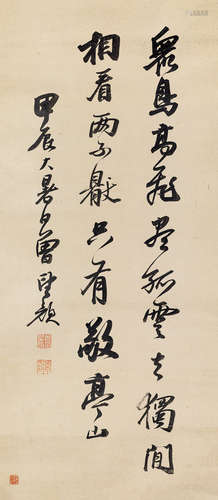 眾鳥高飛盡孤雲去獨閒
相看兩不厭只有敬亭山
甲辰大暑日曾望顏